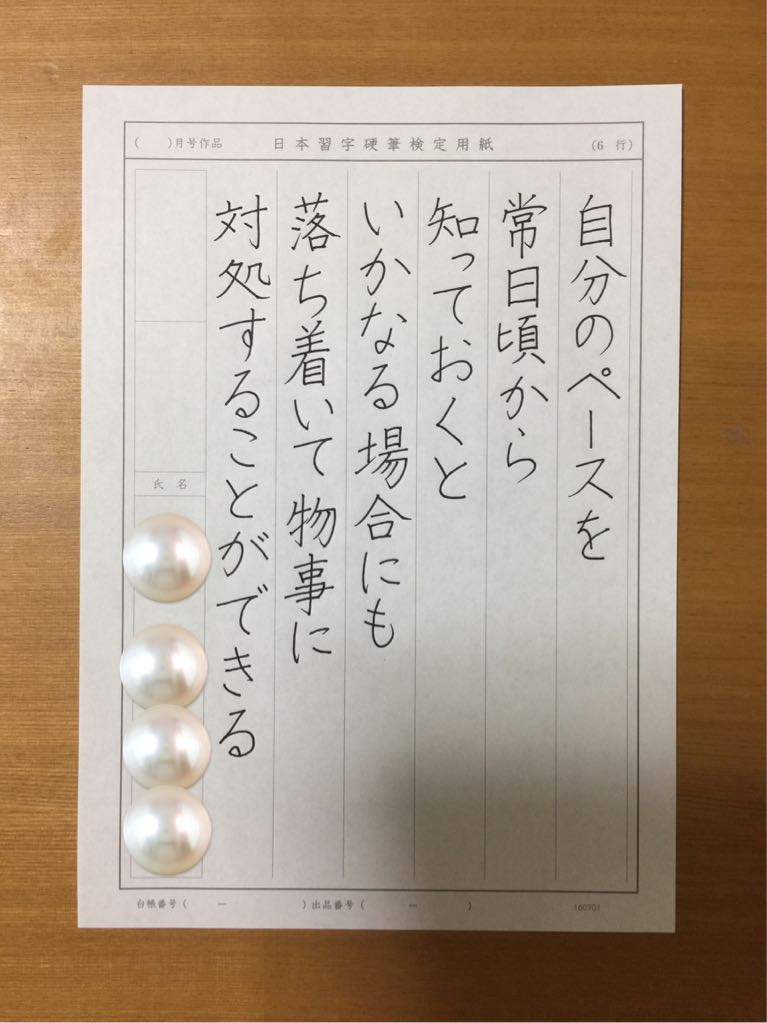 ( )月号作品 日本習字硬筆検定用紙 (6 行)
自分のペースを
常日頃から
知っておくと
いかなる場合にも
落ち着いて物事に
対処することができる
氏名
台帳番号( ー )出品番号( ー ) 160703